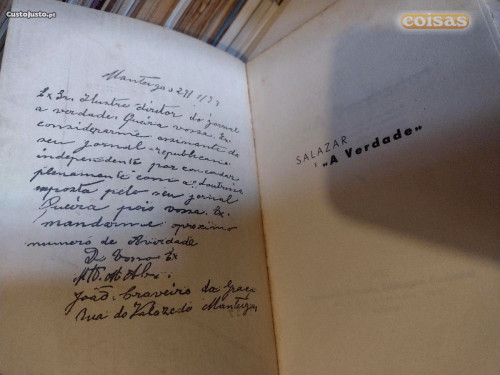 CustoJusto.pt
coisas
Manteigas 21/1/33
Ex Snr Ilustre diretor do jornal
a verdade. Queira vossa. Ex.
considerarme assinante do
seu jornal republicano
independente por concordar
plenamente com a doutrina
imposta pelo seu jornal
Queira pois vossa. Ex.
mandarme o proximo
numero de Averdade
De Vossa Ex
João Craveiro da Graça
Rua do Manteigas
SALAZAR
"A Verdade"